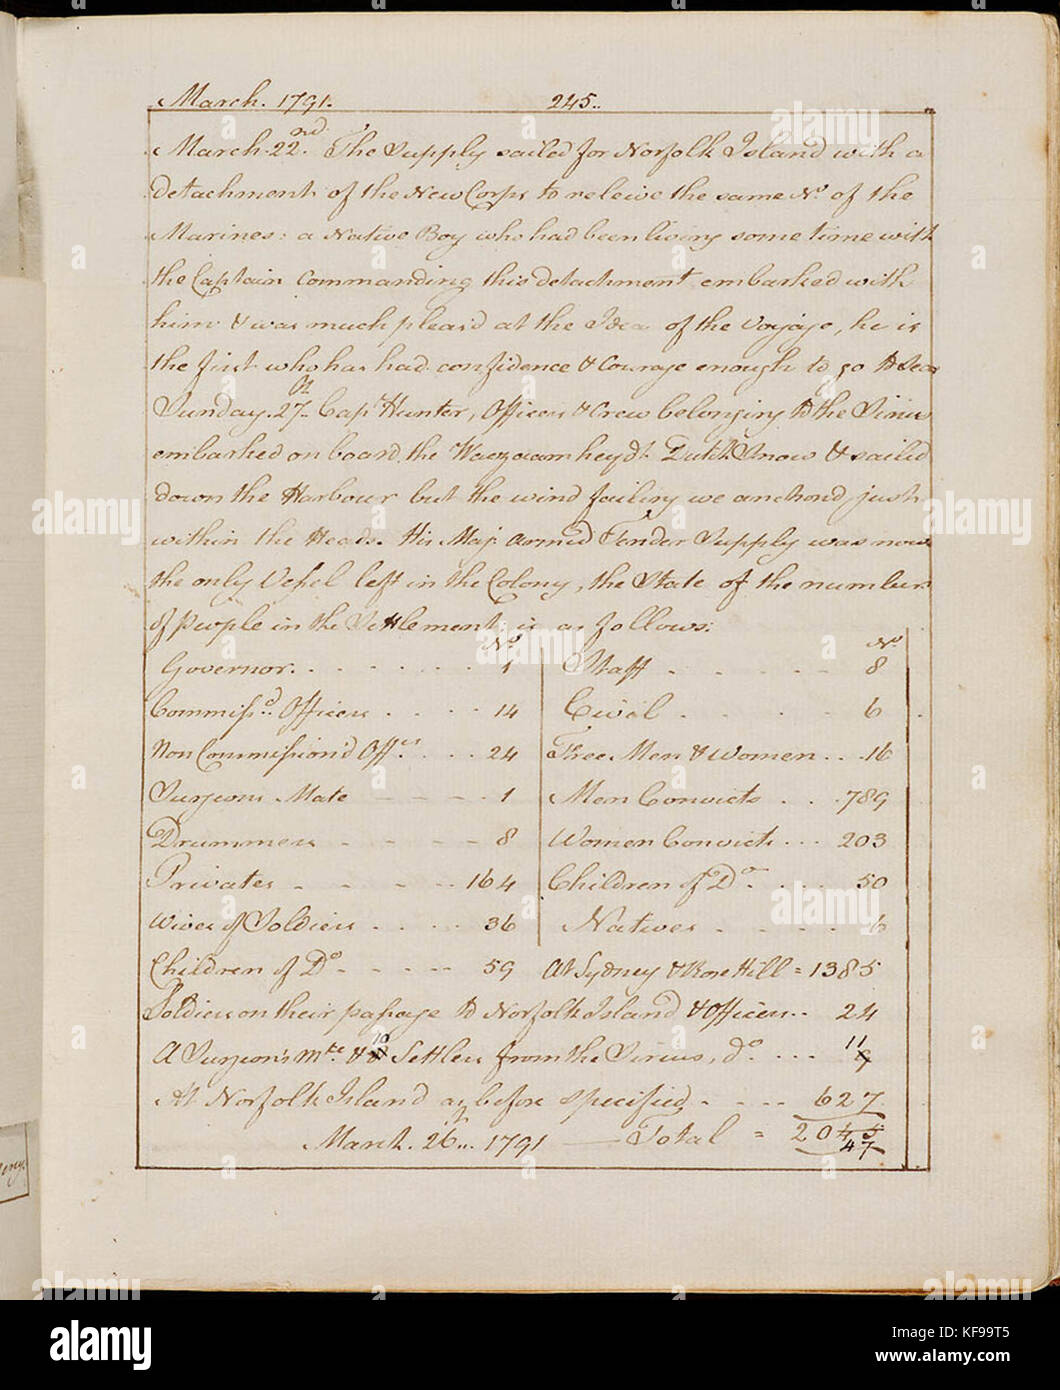 March. 1791. 245..
March. 22nd. The Supply sailed for Norfolk Island with a
detachment of the New Corps to releive the same No. of the
Marines: a Native Boy who had been living some time with
the Captain commanding this detachment embarked with
him & was much pleas'd at the Idea of the Voyage, he is
the first who has had confidence & Courage enough to go to Sea
Sunday. 27th Capt. Hunter, Officers & Crew belonging to the Sirius
embarked on board the Waczaamheydt Dutch Snow & sailed
down the Harbour but the wind failing we anchord just
within the Heads. His Maj. armed Tender Supply was now
the only Vessel left in the Colony, the State of the number
of People in the Settlement is as follows:
No. No.
Governor. . . . . . . . 1 Staff . . . . . . 8
Commissd. Officers . . . . 14 Civil . . . . . 6
Non Commission'd Offrs. . . . 24 Free Men & Women . . . 16
Surgeons Mate - - - - 1 Men Convicts . . . 789
Drummers - - - - - 8 Women Convicts . . . 203
Privates - - - - - 164 Children of Do. . . . . 50
Wives of Soldiers . . . . . 36 Natives - - - - - 6
Children of Do. - - - - - 59 At Sydney & Rose Hill = 1385
Soldiers on their passage to Norfolk Island & Officers.. 24
A Surgeon's Mte. & 10 Settlers from the Sirius, do. ... 11
At Norfolk Island as before specified - - - - 627
March. 26th. 1791 — Total = 2045
47
eny.
alamy
a
KF99T5
www.alamy.com